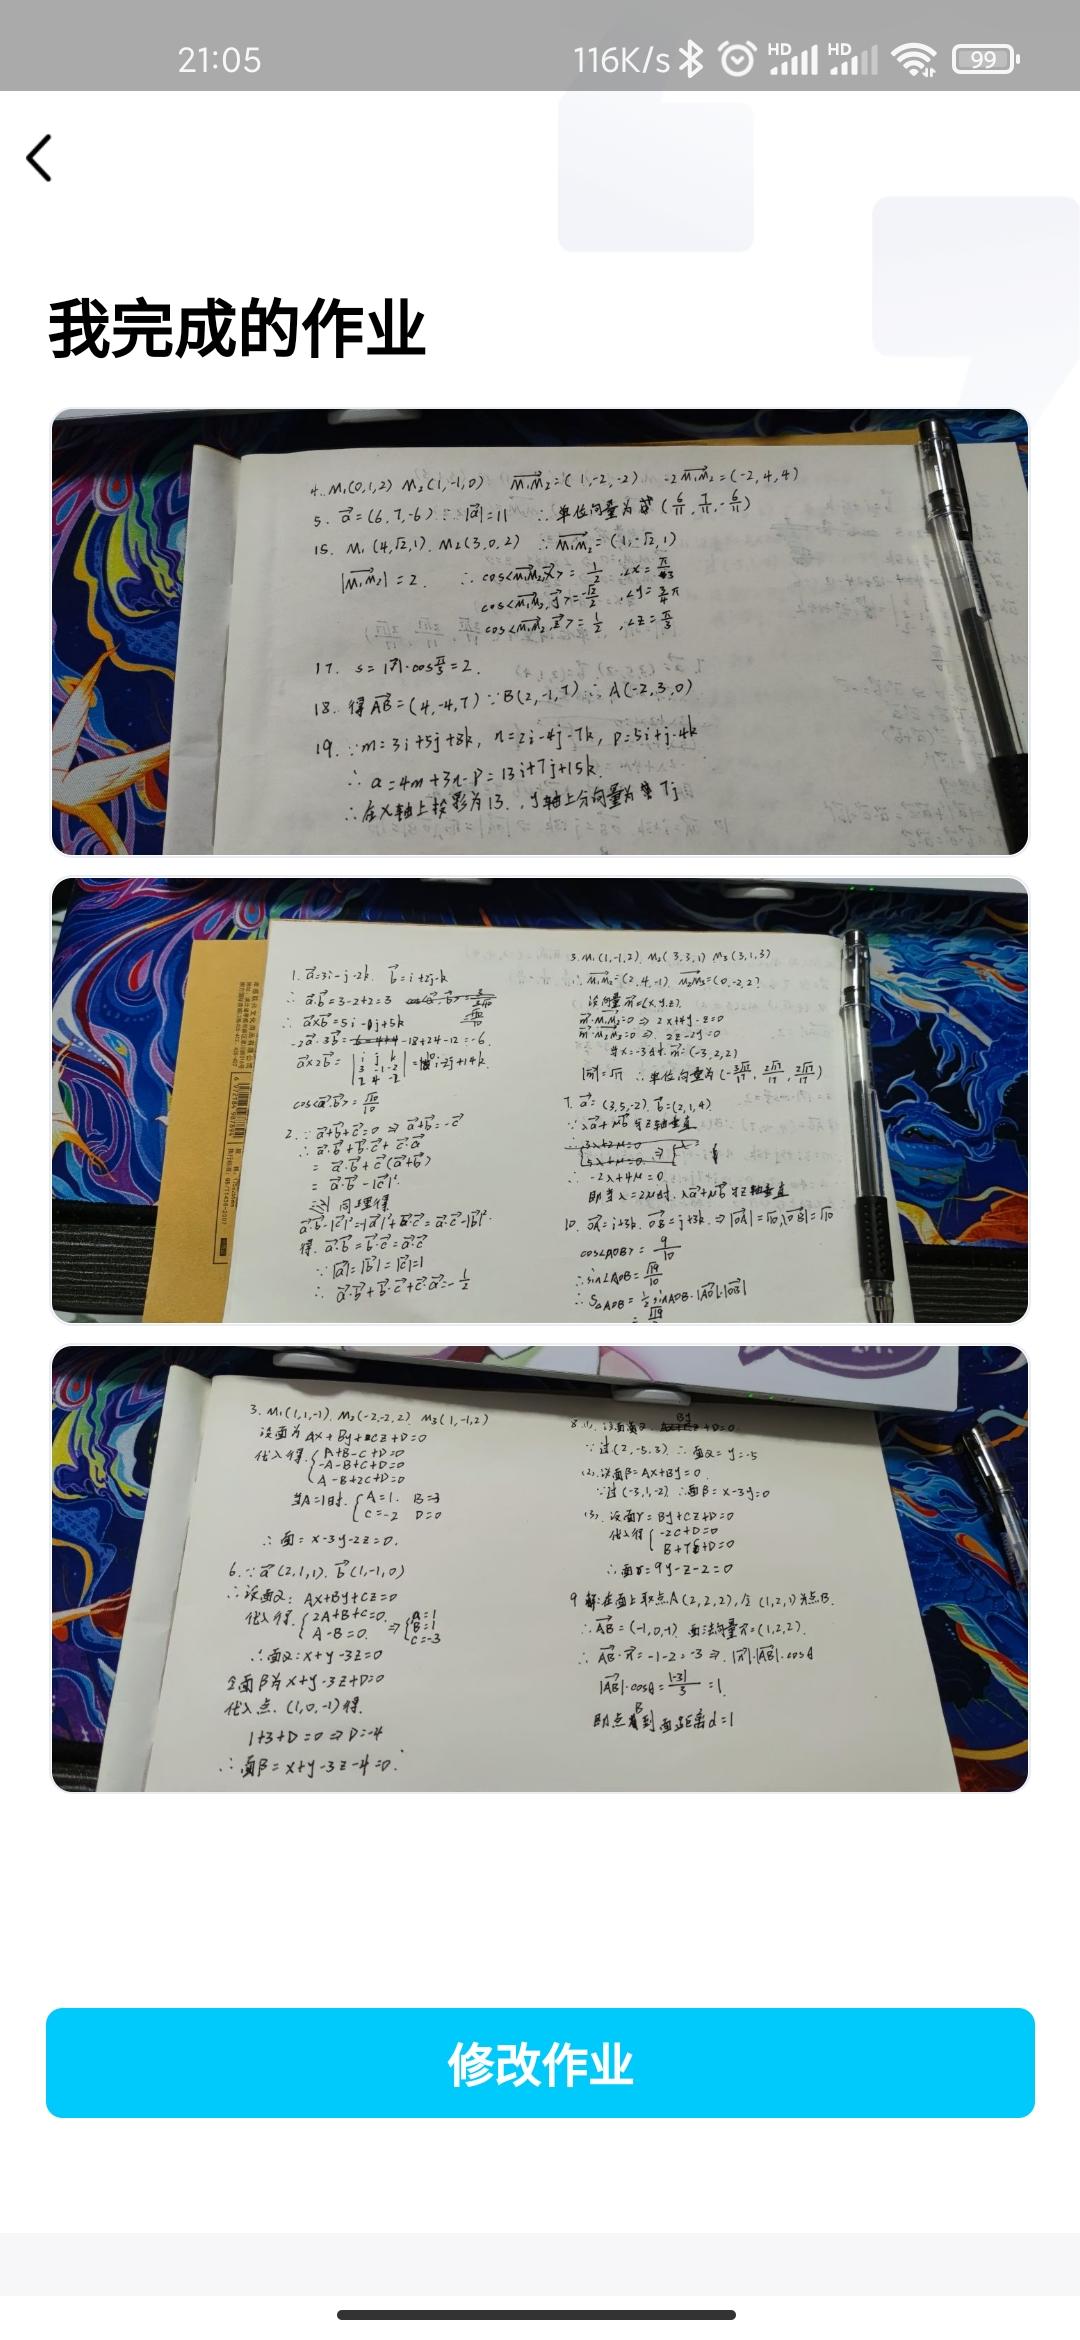 21:05 116K/s HD HD 99
我完成的作业
4. M₁(0,1,2) M₂(1,-1,0) M₁M₂=(1,-2,-2) -2M₁M₂=(-2,4,4)
5. a=(6,7,-6) ∴|a|=11 ∴单位向量为 (6/11,7/11,-6/11)
15. M₁(4,√2,1). M₂(3,0,2) ∴M₁M₂=(1,-√2,1)
|M₁M₂|=2. ∴cos<M₁M₂,x>=1/2 ∴∠x=π/3
cos<M₁M₂,y>=-√2/2 ∴∠y=3/4π
cos<M₁M₂,z>=1/2 ∴∠z=π/3
17. s=|r|·cosπ/3=2.
18. 得AB=(4,-4,7) ∵B(2,-1,7) ∴A(-2,3,0)
19. ∵m=3i+5j+8k, n=2i-4j-7k, p=5i+j-4k
∴a=4m+3n-p=13i+7j+15k.
∴在x轴上投影为13. ,y轴上分向量为 7j
1. a=3i-j-2k. b=i+2j-k
∴a·b=3-2+2=3
∴a×b=5i+j+5k
-2a·3b= -18+24-12=-6.
cos<a,b>=
2. ∵a+b+c=0 ⇒ a+b=-c
∴a·b+b·c+c·a
= a·b+c(a+b)
= a·b-|c|².
同理得
得. a·b=b·c=a·c
∵|a|=|b|=|c|=1
∴a·b+b·c+c·a=-
3. M₁(1,-1,2). M₂(3,3,1) M₃(3,1,3)
∴M₁M₂=(2,4,-1) M₂M₃=(0,-2,2)
设向量n=(x,y,z).
n·M₁M₂=0 ⇒ 2x+4y-z=0
n·M₂M₃=0 ⇒ 2z-2y=0
当x=-3时. n=(-3,2,2)
|n|=√17 ∴单位向量为(-3√17/17, 2√17/17, 2√17/17)
7. a=(3,5,-2). b=(2,1,4)
∵λa+μb与z轴垂直
∴-2λ+4μ=0
即当λ=2μ时. λa+μb与z轴垂直
10. OA=i+3k. OB=j+3k ⇒|OA|=√10,|OB|=√10
cos∠AOB=9/10
∴sin∠AOB=√19/10
∴S△AOB=1/2 sinAOB·|AO|·|OB|
3. M₁(1,1,-1). M₂(-2,-2,2) M₃(1,-1,2)
设面为Ax+By+Cz+D=0
代入得 A+B-C+D=0
-A-B+C+D=0
A-B+2C+D=0
当A=1时. A=1. B=-3
C=-2 D=0
∴面=x-3y-2z=0.
6. ∵a(2,1,1). b(1,-1,0)
∴设面α: Ax+By+Cz=0
代入得 2A+B+C=0. ⇒ A=1
A-B=0. B=1
C=-3
∴面α=x+y-3z=0
全面β为x+y-3z+D=0
代入点.(1,0,-1)得.
1+3+D=0⇒D=-4
∴面β=x+y-3z-4=0.
8.(1).设面为α. By+D=0
∵过(2,-5,3) ∴面α=y=-5
(2).设面β=Ax+By=0
∵过(-3,1,-2) ∴面β=x-3y=0
(3).设面γ=By+Cz+D=0
代入得 -2C+D=0
∴面γ=9y-z-2=0
9 解:在面上取点A(2,2,2),令(1,2,1)为点B.
∴AB=(-1,0,-1) 面法向量n=(1,2,2).
∴AB·n=-1-2=-3⇒|n|·|AB|·cosθ
|AB|·cosθ=|-3|/3=1.
即点B到面距离d=1
修改作业